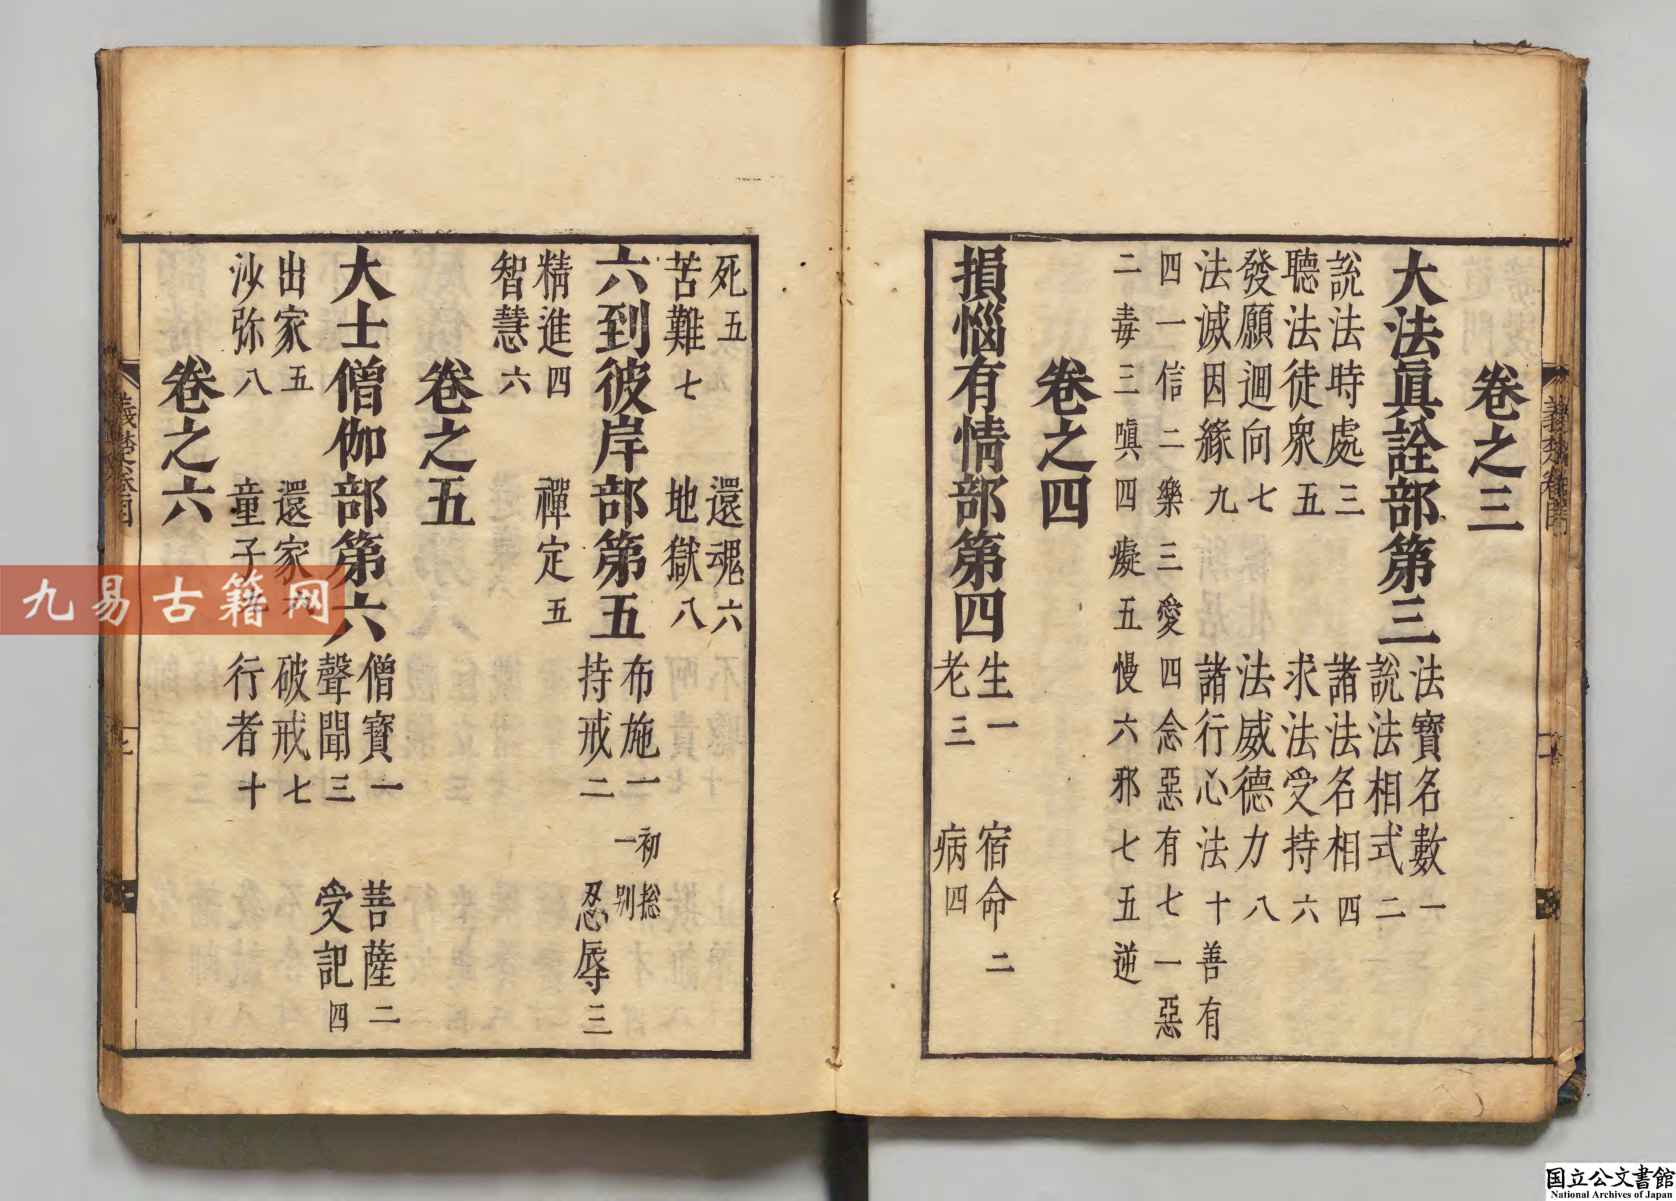 卷之三
大法眞詮部第三 法寶名數一
說法相式二
說法時處三 諸法名相四
聽法徒衆五 求法受持六
發願迴向七 法威德力八
法滅因緣九 諸行心法十善有
四一信二樂三愛四念惡有七一惡
二毒三嗔四癡五慢六邪七五逆
卷之四
損惱有情部第四 生一 宿命二
老三 病四
死五 還魂六
苦難七 地獄八
六到彼岸部第五 布施一 初総
一别
持戒二 忍辱三
精進四 禪定五
智慧六
卷之五
大士僧伽部第六 僧寶一 菩薩二
聲聞三 受記四
出家五 還家 破戒七
沙弥八 童子 行者十
卷之六
九易古籍网
国立公文書館
National Archives of Japan